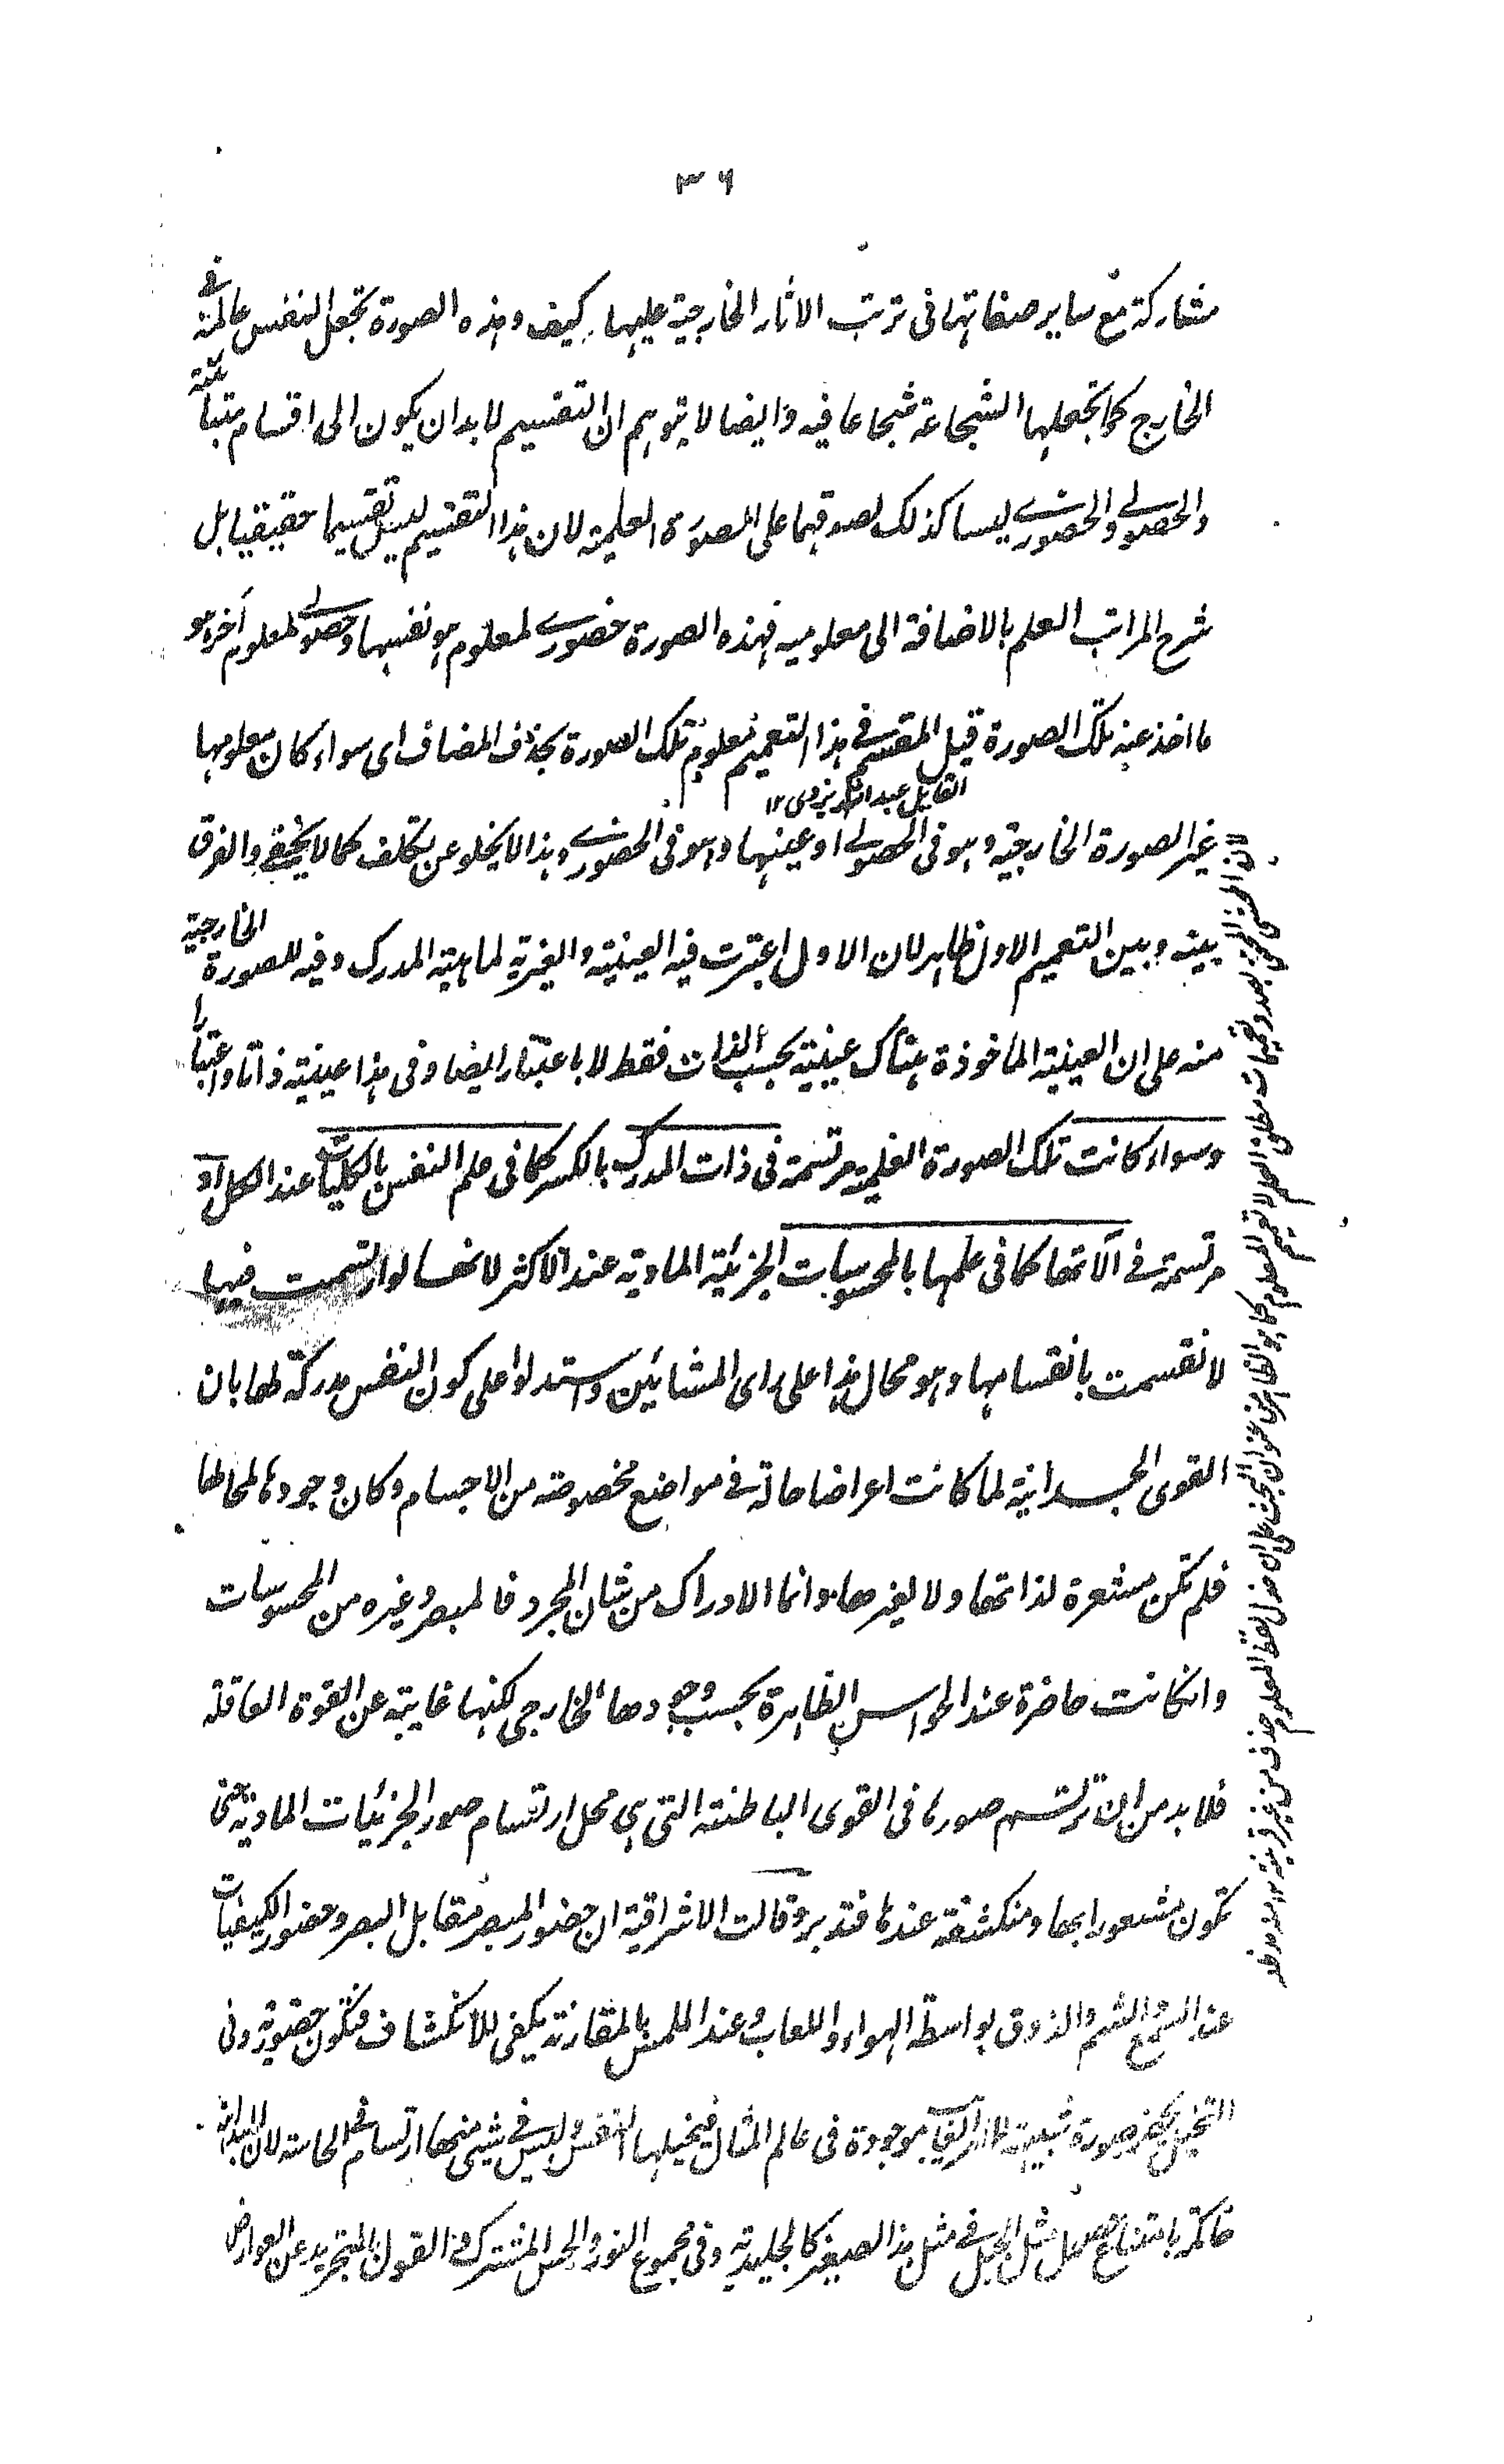 ٣٦
مشاركة مع ساير صفاتها فى ترتب الاثار الخارجية عليها كيف وهذه الصورة تجعل النفس عالمة فى
الخارج كما تجعلها الشجاعة شجاعا فيه وايضا لا يتوهم ان التقسيم لا بد ان يكون الى اقسام متباينة
والحصولى والحضورى ليسا كذلك لصدقهما على الصورة العلمية لان هذا التقسيم ليس تقسيما حقيقيا بل
شرح المراتب العلم بالاضافة الى معلوميه فهذه الصورة حضورى لمعلوم هو نفسها وحصولى لمعلوم آخر هو
ما اخذ عنه تلك الصورة قيل المقسم فى هذا التعميم معلوم تلك الصورة بحذف المضاف اى سواء كان معلومها
القايل عبد الله يزدى ١٢
غير الصورة الخارجية وهو فى الحصولى او عينها وهو فى الحضورى وهذا لا يخلو عن تكلف كما لا يخفى والفرق
بينه وبين التعميم الاول ظاهر لان الاول اعتبرت فيه العينية والغيرية لماهية المدرك وفيه للصورة الخارجية
منه على ان العينية الماخوذة هناك عينية بحسب الذات فقط لا باعتبار ايضا وفى هذا عينية ذاتا واعتبارا
وسواء كانت تلك الصورة العلمية مرتسمة فى ذات المدرك بالكسر كما فى علم النفس بالكليات عند الكل او
مرتسمة فى آلاتها كما فى علمها بالمحسوسات الجزئية المادية عند الاكثر لانها لو ارتسمت فيها
لانقسمت بانقسامها وهو محال هذا على راى المشائين واستدلوا على كون النفس مدركة لها بان
القوى الجسدانية لما كانت اعراضا حالة فى مواضع مخصوصة من الاجسام وكان وجودها لمحالها
فلم تكن مشعرة لذاتها ولا لغيرها وانما الادراك من شان المجرد فالمبصر وغيره من المحسوسات
وانكانت حاضرة عند الحواس الظاهرة بحسب وجودها الخارجى لكنها غايبة عن القوة العاقلة
فلابد من ان ترتسم صورها فى القوى الباطنة التى هى محل ارتسام صور الجزئيات المادية حتى
تكون مشعورا بها ومنكشفة عندها فتدبر وقالت الاشراقية ان حضور المبصر مقابل البصر وحضور الكيفيات
عند السمع والشم والذوق بواسطة الهواء واللعاب وعند اللمس بالمقارنة يكفى للانكشاف فتكون حضورية وفى
التخيل يحضر صورة شبيهة موجودة فى عالم المثال فيتخيلها النفس وليس فى شىء منها ارتسام فى الحاسة لان البداهة
حاكمة بامتناع حصول مثل الجبل فى مثل هذا الصغير كالجليدية وفى مجموع النور والحس المشترك والقول بالتجريد عن العوارض